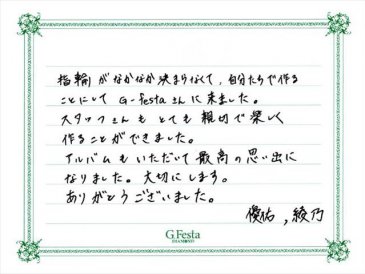 指輪がなかなか決まらなくて、自分たちで作る
ことにして G-festaさんに来ました。
スタッフさんも とても 親切で楽しく
作ることができました。
アルバムもいただいて最高の思い出に
なりました。大切にします。
ありがとうございました。
優佑，綾乃
G.Festa
DIAMOND